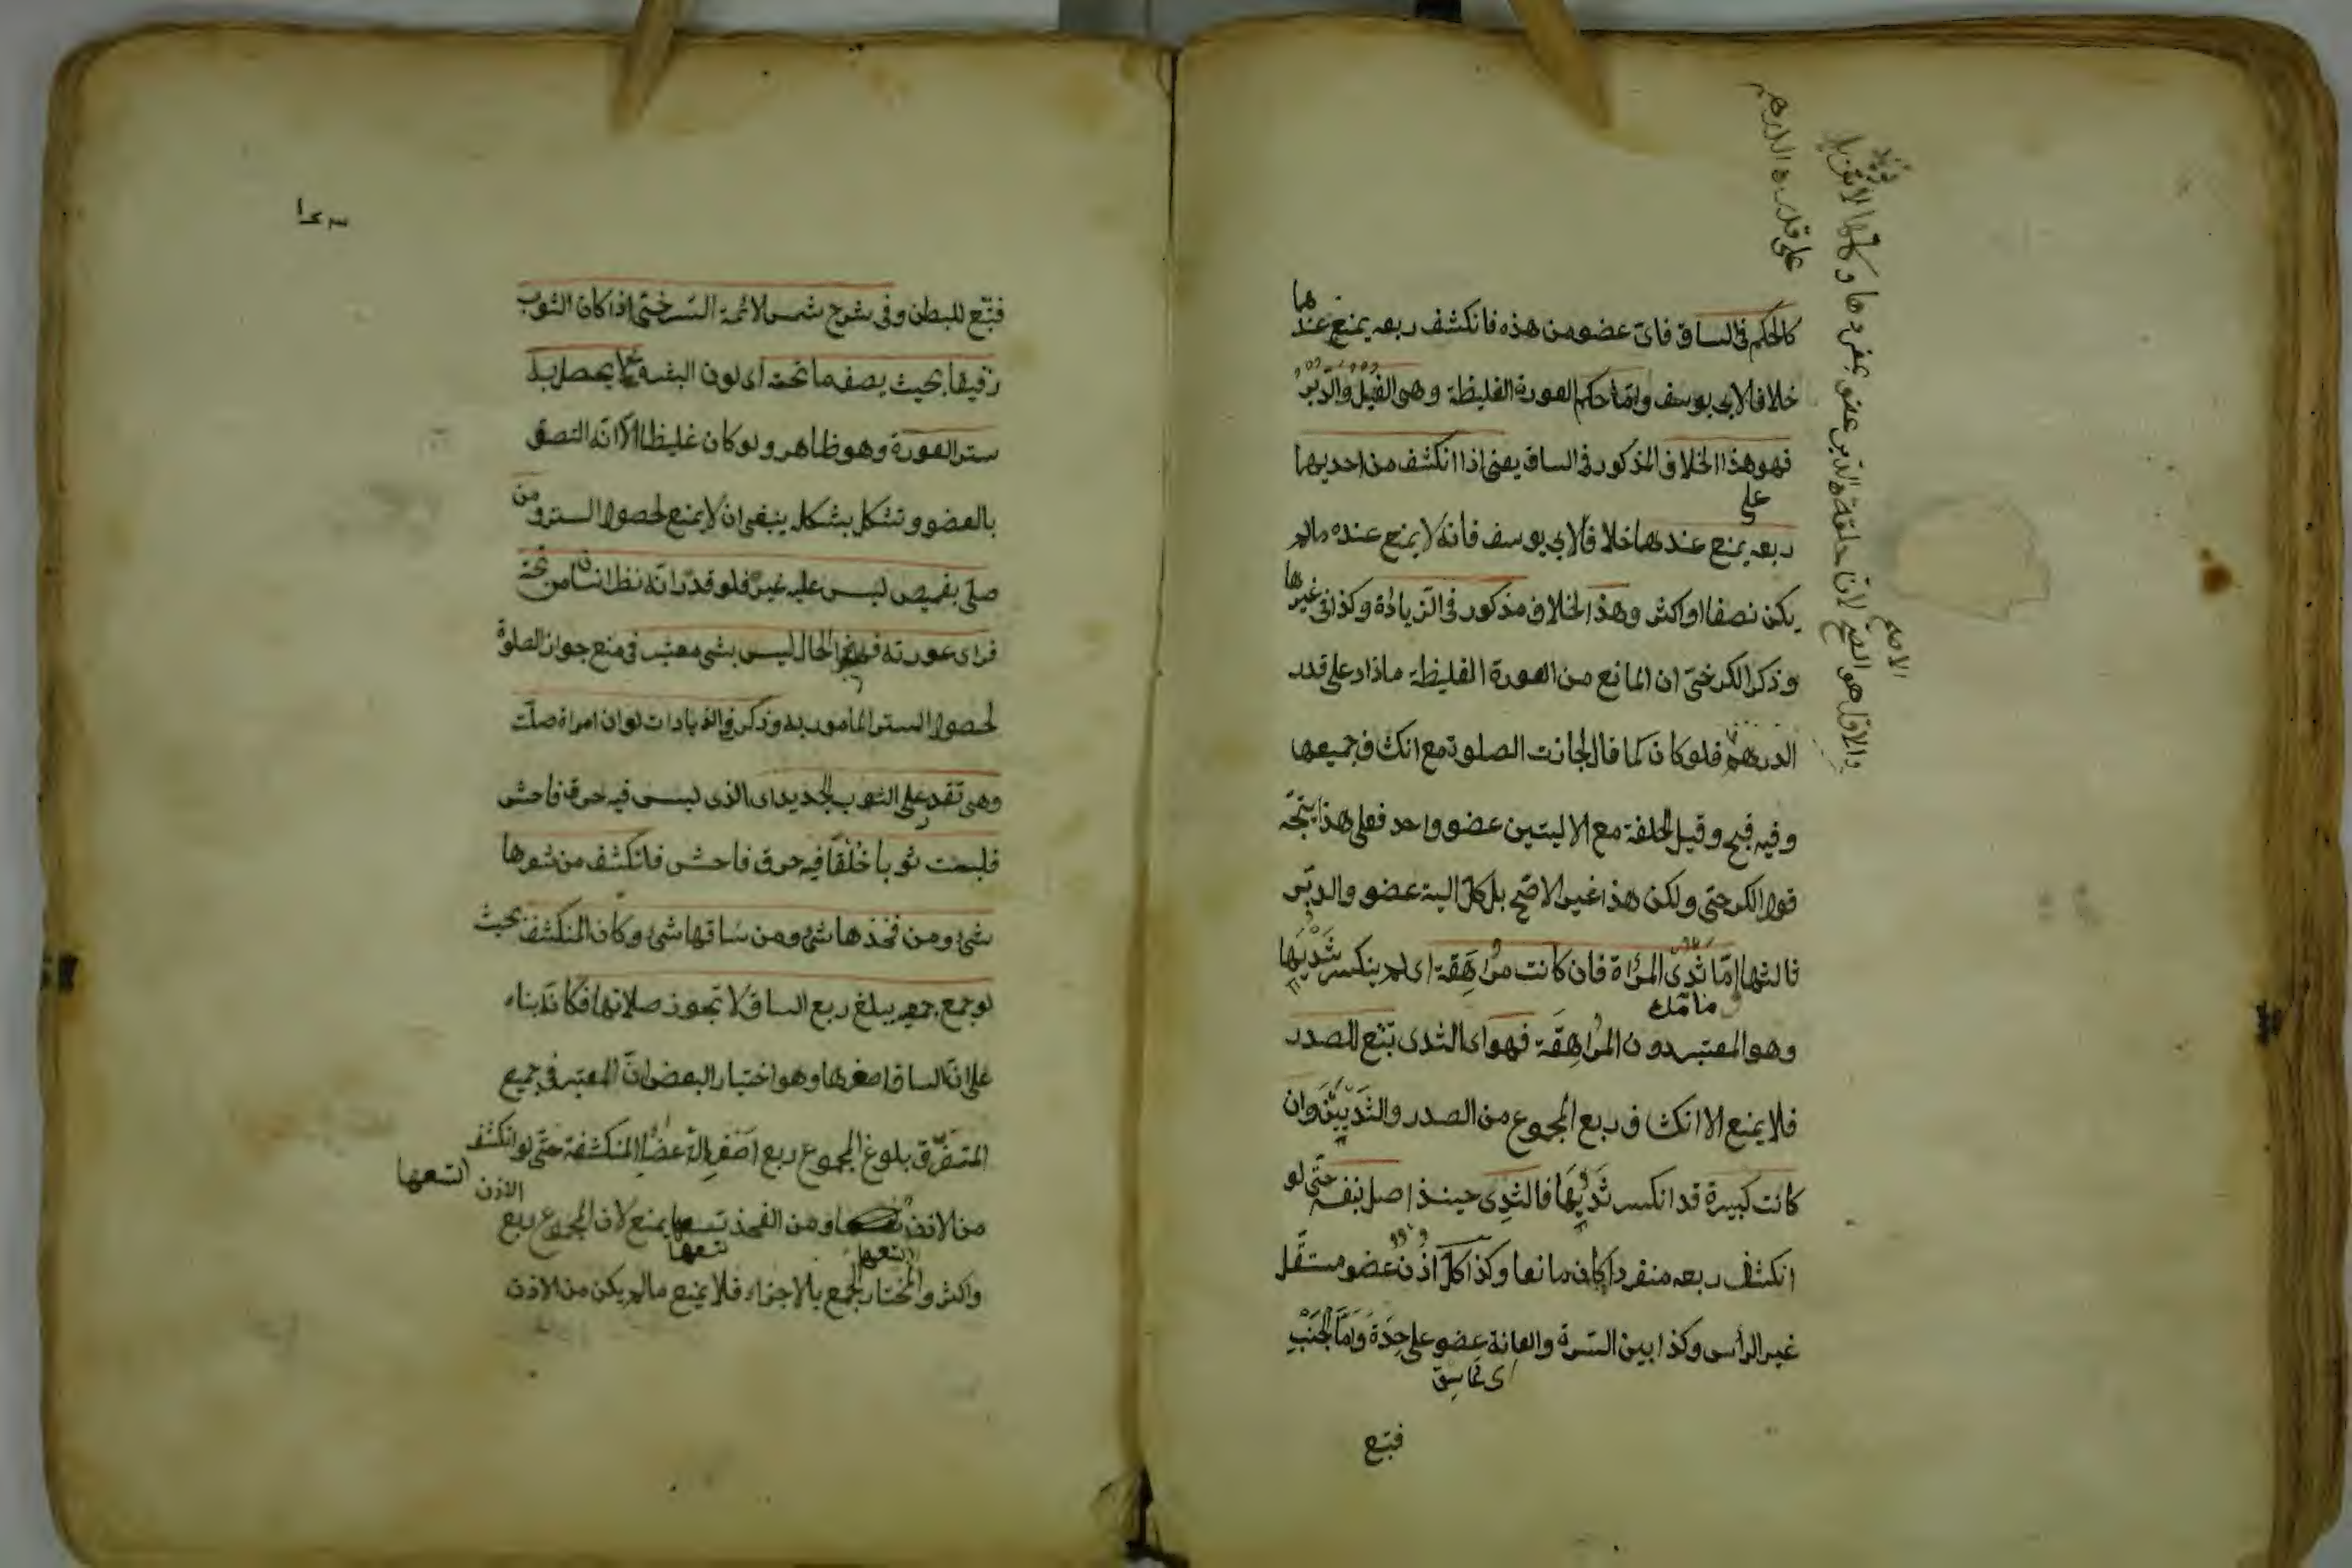 كالحكم في الساق فاى عضو من هذه فانكشف ربعه يمنع عندهما
خلافا لابى يوسف وامّا حكم العورة الغليظة وهى القبل والدبر
فهو هذا الخلاف المذكور في الساق يعنى اذا انكشف من احديهما
ربعه يمنع عندهما خلافا لابي يوسف فانه لا يمنع عنده مالم
يكن نصفا او اكثر وهذا الخلاف مذكور في الزيادة وكذا في غيرها
وذكر الكرخىّ ان المانع من العورة الغليظة ما زاد على قدر
الدرهم فلو كان كما قال لجازت الصلوة مع انكشاف جميعها
وفيه قبح وقيل الحلقة مع الاليتين عضو واحد فعلى هذا يتجّه
قول الكرخى ولكن هذا غير الاصّح بل كلّ الية عضو والدبر
ثالثها امّا ثدى المرأة فان كانت مراهقة اى لم ينكسر ثديها
وهو المعتبر دون المراهقة فهو اى الثدى تبّع للصدر
فلا يمنع الا انكشاف ربع المجموع من الصدر والثديين وان
كانت كبيرة قد انكسر ثديها فالثدى حينئذ اصل بنفسه حتّى لو
انكشف ربعه منفردا كان مانعا وكذا كلّ اذن عضو مستقّل
غير الرأس وكذا بين السّرة والعانة عضو على حدة وامّا الجنب
فتبع
على قدر الدرهم
الاصح
فتبّع للبطن وفى شرح شمس الائمة السّرخسىّ اذا كان الثوب
رقيقا بحيث يصف ما تحته اى لون البشرة لا يحصل به
ستر العورة وهو ظاهر ولو كان غليظا الّا انّه التصق
بالعضو وتشكل بشكله ينبغى ان لا يمنع لحصول الستر ومن
صلّى بقميص ليس عليه غيره فلو قدّر انّه نظر انسان من تحته
فراى عورته فهذا الحال ليس بشى معتبر في منع جواز الصلوة
لحصول الستر المامور به وذكر في الزيادات لو ان امراة صلّت
وهى تقدر على الثوب الجديد اى الذى ليس فيه خرق فاحش
فلبست ثوبا خلقا فيه خرق فاحش فانكشف من شعرها
شئ ومن فخذها شئ ومن ساقها شئ وكان المنكشف بحيث
لو جمع جميعه يبلغ ربع الساق لا تجوز صلاتها فكانّه بناه
على انّ الساق اصغرها وهو اختيار البعض انّ المعتبر في جميع
المتفرّق بلوغ المجموع ربع اصغر الاعضاء المنكشفة حتّى لو انكشف
من الاذن تسعها ومن الفخذ تسعها يمنع لان المجموع ربع
واكثر والمختار الجمع بالاجزاء فلا يمنع مالم يكن من الاذن